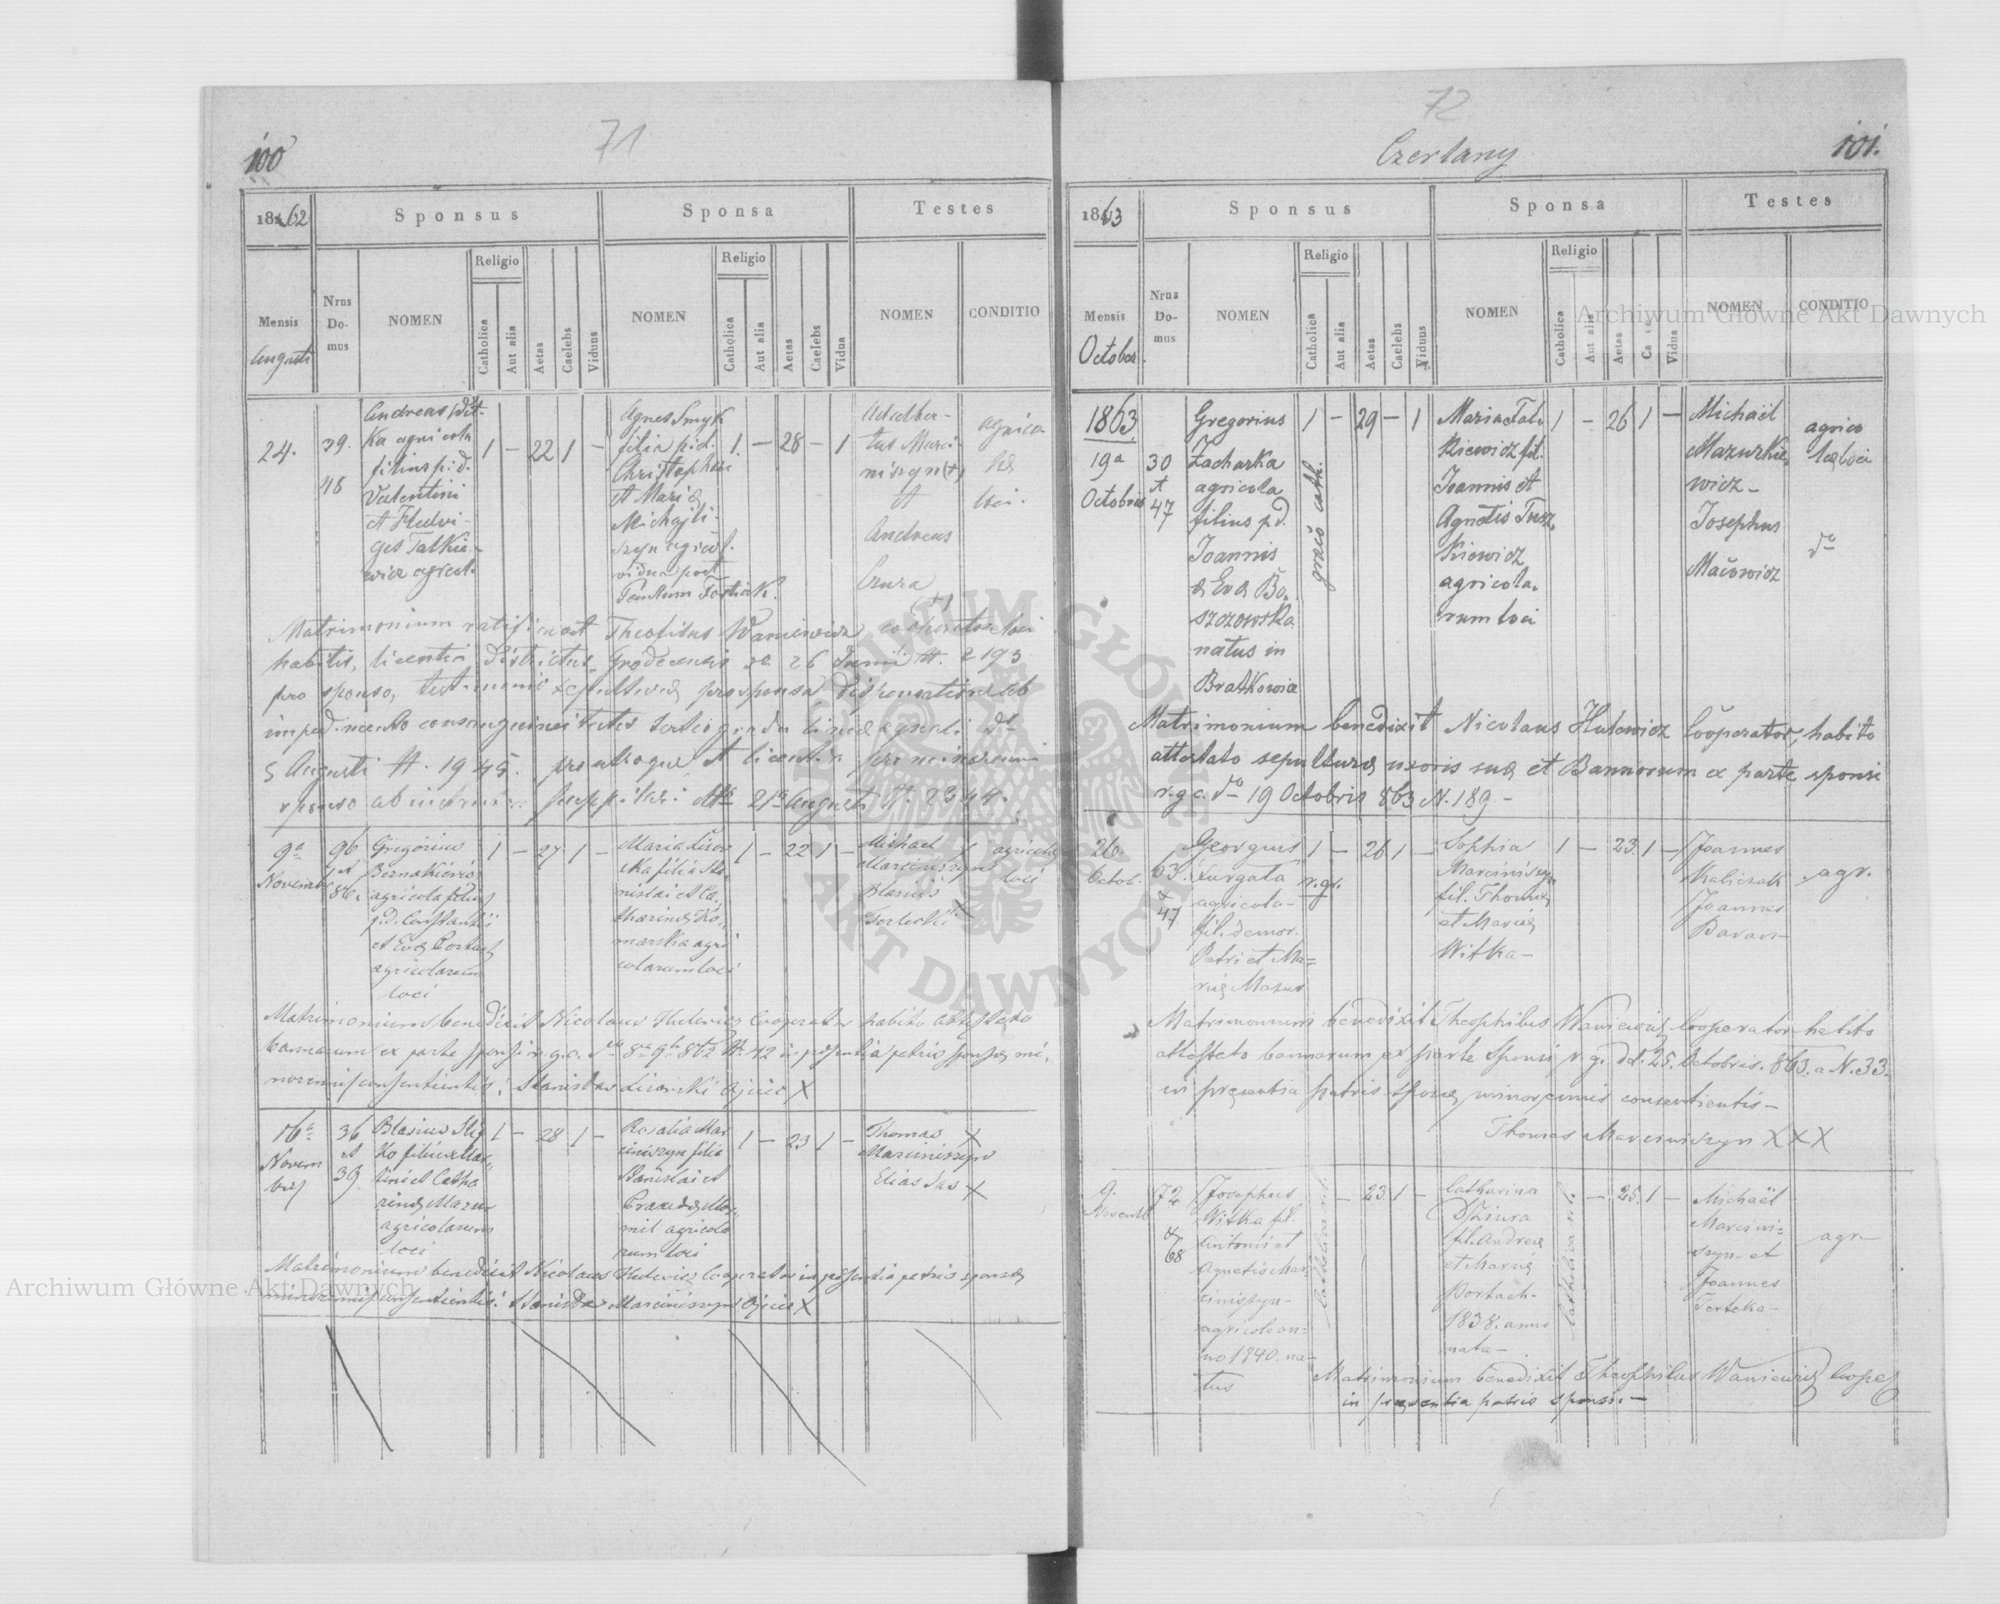 100
71
1862
Sponsus
Sponsa
Testes
Mensis
Augusti
Nrus Domus
NOMEN
Religio
Catholica
Aut alia
Aetas
Caelebs
Viduus
NOMEN
Religio
Catholica
Aut alia
Aetas
Caelebs
Vidua
NOMEN
CONDITIO
24.
39.
48
Andreas Wit-
ka agricola
filius p.d.
Valentini
et Hedvi-
gis Falkie-
wicz agricol.
1 – 22 1 –
Agnes Smyk
filia p.d.
Christophori
et Mariæ
Michajli-
szyn agricol.
vidua post
1 – 28 – 1
Adalber-
tus Marci-
niszyn (+)
et
Andreas
Czura
agrico
læ
loci.
Matrimonium ratificavit Theofilus Waniewicz cooperator loci
habitis, licentia Districtus Grodecensis de 26 Junii N. 2193
pro sponso, testimonio sepulturæ pro sponsa dispensatione ab
impedimento consanguineitatis tertio gradu lineæ æquali dt
5 Augusti N. 1945. pro utroque et licentia pro minorenni
sponso ab 21a Augusti N. 2344.
9a
Novemb
96
et
86.
Gregorius
Bernakiewicz
agricola filius
p.d. Constantii
et Evæ Portuch
agricolarum
loci
1 – 27 1 –
Maria Lisow
ska filia Sta
nislai et Ca-
tharinæ Ko-
marska agri
colarum loci
1 – 22 1 –
Michael +
Marciniszyn
Blasius
Terlecki +
agricolæ
loci
Matrimonium benedixit Nicolaus Hulewicz Cooperator habito attestato
bannorum ex parte sponsi r.g.c. N. 42 in præsentia patris sponsæ mi-
norennis consentientis: Stanisław Lisowski Ojciec X
16a
Novem
bris
36
et
39
Blasius Sliz
ko filius Mar-
tini et Catha
rinæ Mazur
agricolarum
loci
1 – 28 1 –
Rosalia Mar
ciniszyn filia
Stanislai et
agricola
rum loci
1 – 23 1 –
Thomas +
Marciniszyn
Elias Sus +
Matrimonium benedixit Nicolaus Hulewicz Cooperator in præsentia patris sponsæ
minorennis consentientis: Stanisław Marciniszyn Ojciec X
72
Czerlany
101.
1863
Sponsus
Sponsa
Testes
Mensis
October
Nrus Domus
NOMEN
Religio
Catholica
Aut alia
Aetas
Caelebs
Viduus
NOMEN
Religio
Catholica
Aut alia
Aetas
Vidua
NOMEN
CONDITIO
1863
19a
Octobris
30
et
47
Gregorius
Zacharka
agricola
filius p.d.
Joannis
& Evæ Bo-
szczowska
natus in
Bratkowice
1 – 29 – 1
græc cath.
Maria Fal-
kiewicz fil.
Joannis et
Agnetis Tusz-
kiewicz
agricola-
rum loci
1 – 26 1 –
Michaël
Mazurkie-
wicz –
Josephus
Macowicz
agrico
læ loci
do
Matrimonium benedixit Nicolaus Hulewicz Cooperator, habito
attestato sepulturæ uxoris suæ et Bannorum ex parte sponsi
r.g.c. do 19 Octobris 863 N. 189 –
26.
Octob.
63.
&
47
Georgius
Zurgata
agricola –
fil. demor.
Petri et Ma=
riæ Mazur
1 – 26 1 –
r.gr.
Sophia
Marciniszyn
fil. Thomæ
et Mariæ
Witka –
1 – 23 1 –
Joannes
Kaliczak
Joannes
Baran –
agr.
Matrimonium benedixit Theophilus Waniewicz Cooperator habito
attestato bannorum ex parte Sponsi r.g. dd. 25. Octobris. 863. a N. 33.
in præsentia patris sponsæ minorennis consentientis –
Thomas Marciniszyn XXX
9.
Novemb
72
&
68
Josephus
Witka fil.
Antonii et
Agnetis Mar-
ciniszyn –
agricola an-
no 1840. na-
tus
– 23 1 –
Catharina
Dziura
fil. Andreæ
et Mariæ
Portuch.
1838. anno
nata –
– 25. 1 –
Michaël
Marcini=
szyn et
Joannes
Terlecka –
agr –
Matrimonium benedixit Theophilus Waniewicz Cooper
in præsentia patris sponsi. –
Archiwum Główne Akt Dawnych
Archiwum Główne Akt Dawnych
ARCHIWUM GŁÓWNE AKT DAWNYCH